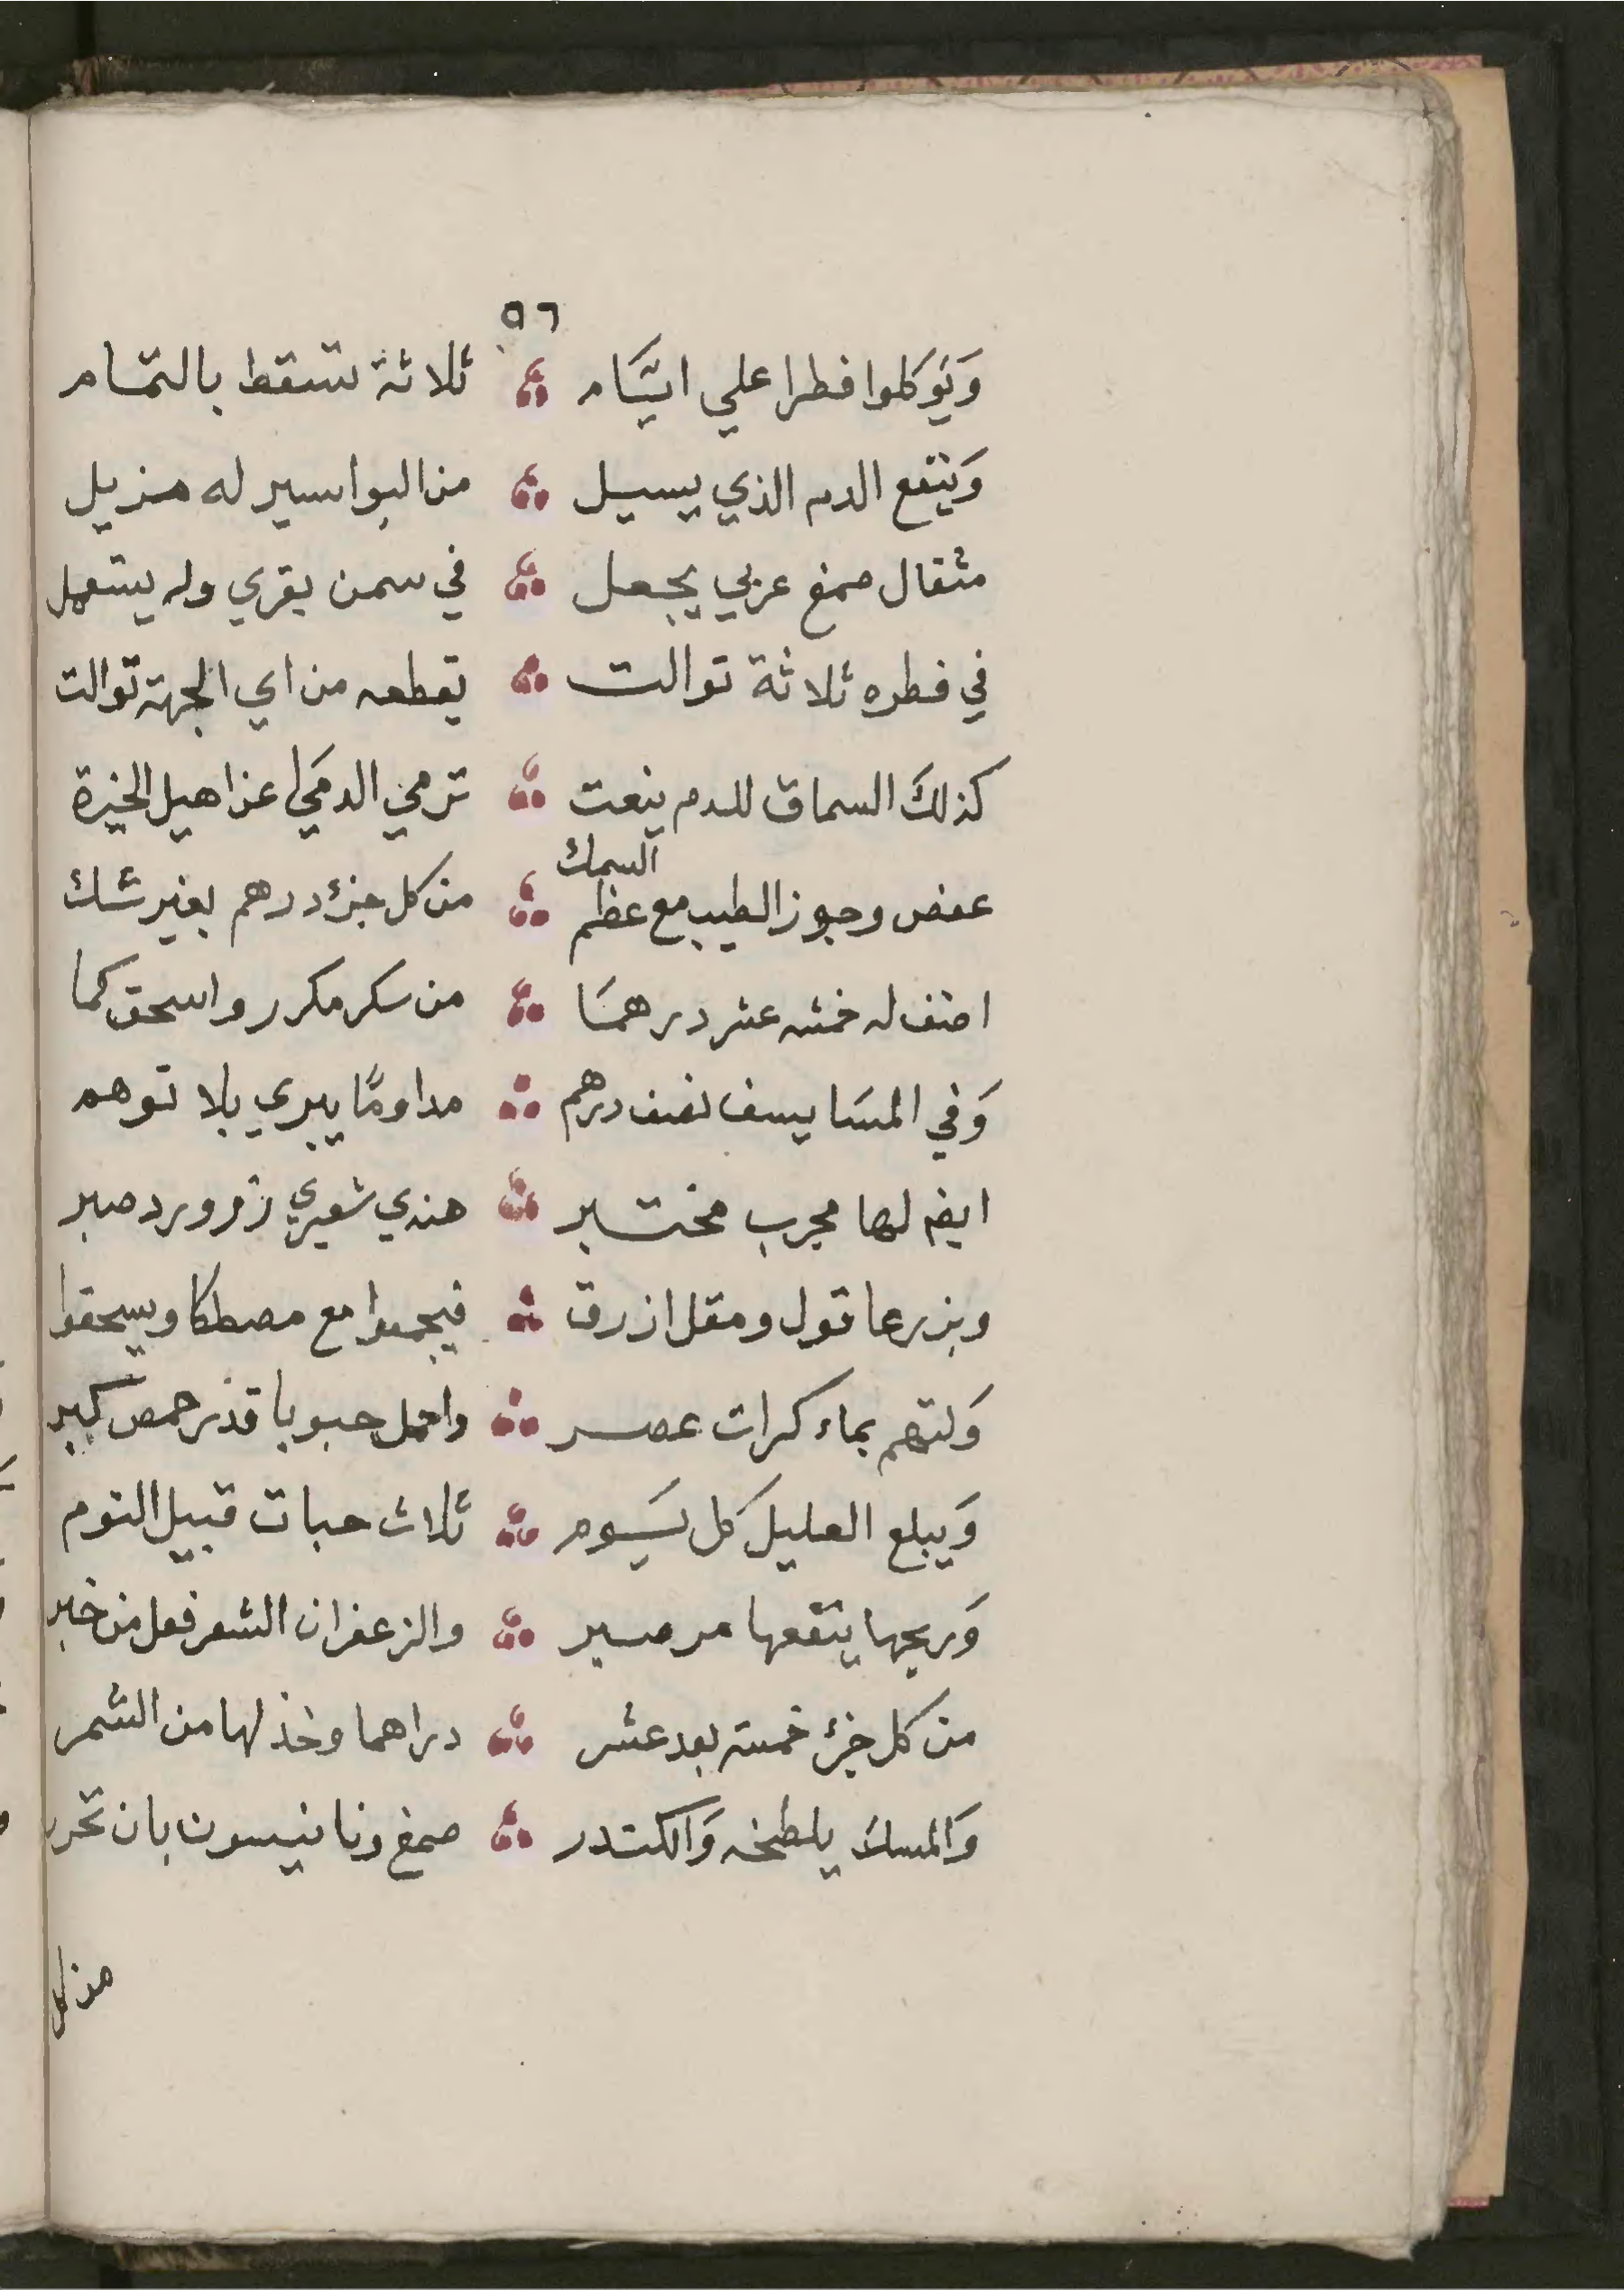 ٥٦
وَيَوكلوا فطرا علي ايَّام ثلاثة تسقط بالتمام
وَينفع الدم الذي يسيل من البواسير له مزيل
مثقال صمغ عربي يجعل في سمن بقري وله يستعمل
في فطره ثلاثة توالت يقطعه من اي الجهة توالت
كذلكَ السماق للدم ينعت ترمي الدمَي عن اهيل الخيرة
عفص وجوز الطيب مع عظم السمك من كل جزؤ درهم بغير شك
اضف له خمسه عشر درهمَا من سكر مكرر واسحق كما
وَفي المسَا يسف نصف درهم مداومًا يبري بلا توهم
ايضا لها مجرب مختبر هندي شعيري زر ورد صبر
وبزر عاقول ومقل ازرق فيجمعوا مع مصطكا ويسحقوا
وَلتهم بماء كرات عصر واعمل حبوبا قدر حمص كبير
وَيبلع العليل كل يَوم ثلاث حبات قبيل النوم
وَريحها ينفعها مر صبر والزعفران الشعر فعل من خبر
من كل جزؤ خمسة بعد عشر دراهما وخذ لها من الشمر
وَالمسك يلطخه وَالكندر صمغ ونانيسون بان تحرر
من كل